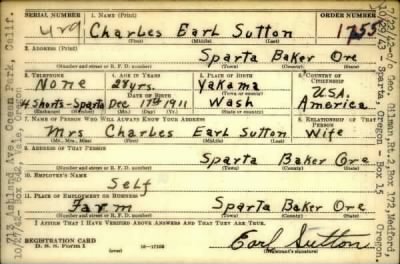 SERIAL NUMBER 1. NAME (Print) ORDER NUMBER
429 Charles Earl Sutton 1755
(First) (Middle) (Last)
2. ADDRESS (Print)
Sparta Baker Ore
(Number and street or R. F. D. number) (Town) (County) (State)
3. TELEPHONE 4. AGE IN YEARS 5. PLACE OF BIRTH 6. COUNTRY OF CITIZENSHIP
None 28yrs. Yakama U.S.A.
DATE OF BIRTH (Town or county)
4 Shorts-Sparta Dec 17th 1911 Wash America
7. NAME OF PERSON WHO WILL ALWAYS KNOW YOUR ADDRESS 8. RELATIONSHIP OF THAT PERSON
Mrs Charles Earl Sutton Wife
(Mr., Mrs., Miss) (First) (Middle) (Last)
9. ADDRESS OF THAT PERSON
Sparta Baker Ore
(Number and street or R. F. D. number) (Town) (County) (State)
10. EMPLOYER'S NAME
Self
11. PLACE OF EMPLOYMENT OR BUSINESS
Farm Sparta Baker Ore
(Number and street or R. F. D. number) (Town) (County) (State)
I AFFIRM THAT I HAVE VERIFIED ABOVE ANSWERS AND THAT THEY ARE TRUE.
REGISTRATION CARD
D. S. S. Form 1 Earl Sutton
(Registrant's signature)
712 Ashland Ave, Ocean Park, Calif.
10/27/42- Box 642, Vale, Oregon
10/29/43 - Sparta, Oregon - Box 15
Gilman, Rt. 2, Box 172, Medford, Oregon.